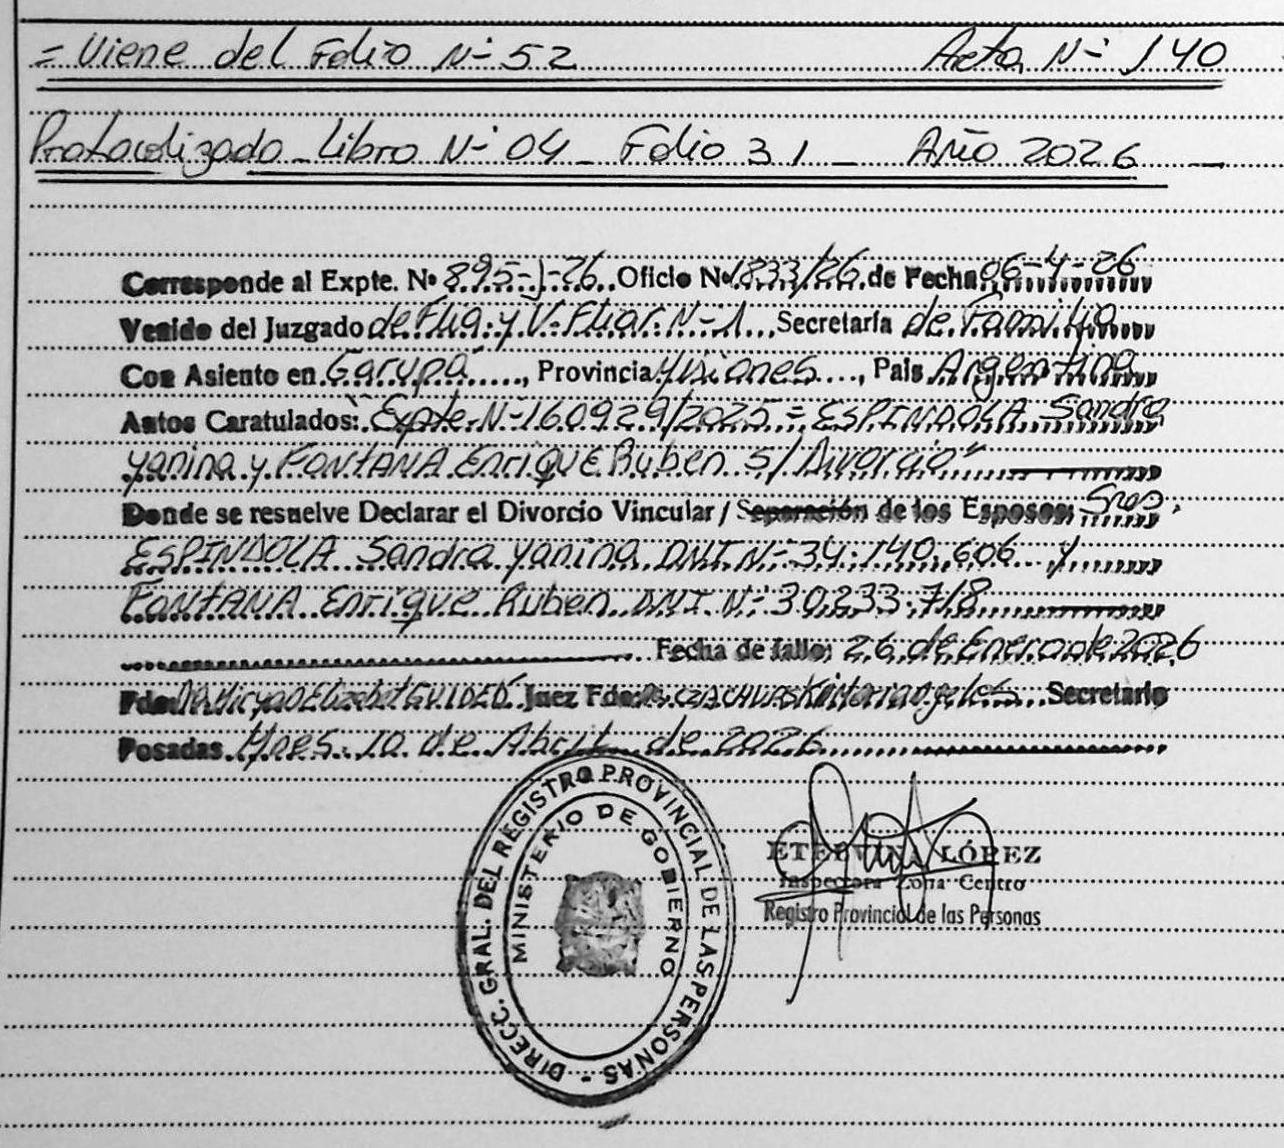 = Viene del Folio N- 52 Acta N- 140
Protocolizado - Libro N- 04 - Folio 31 - Año 2026 -
Corresponde al Expte. Nº 895-J-26. Oficio Nº 1833/26 de Fecha 06-4-26
Venido del Juzgado de Flia. y V. Fliar. N-1 Secretaría de Familia
Con Asiento en Garupá, Provincia Misiones, Pais Argentina
Autos Caratulados: "Expte. N- 160929/2025 = ESPINDOLA Sandra
Yanina y FONTANA Enrique Ruben s/ Divorcio"
Donde se resuelve Declarar el Divorcio Vincular / Separación de los Esposos: Sres.
ESPINDOLA Sandra Yanina DNI N- 34.140.606 y
FONTANA Enrique Ruben DNI. N- 30.233.718
Fecha de fallo: 26 de Enero de 2026
Fdo. Elizabet Juez Fdo. Secretario
Posadas, Mnes. 10 de Abril de 2026
DIRECC. GRAL. DEL REGISTRO PROVINCIAL DE LAS PERSONAS -
MINISTERIO DE GOBIERNO
ETELVINA LÓPEZ
Inspectora Zona Centro
Registro Provincial de las Personas